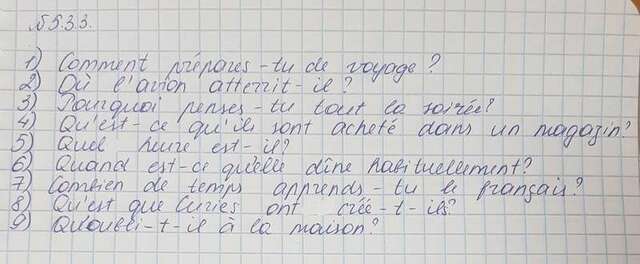 № 5.3.3.
1) Comment prépares-tu de voyage?
2) Où l'avion atterrit-il?
3) Pourquoi penses-tu tout la soirée?
4) Qu'est-ce qu'ils sont acheté dans un magazin?
5) Quel heure est-il?
6) Quand est-ce qu'elle dîne habituellement?
7) Combien de temps apprends-tu le français?
8) Qu'est que Curies ont créé-t-ils?
9) Qu'oubli-t-il à la maison?